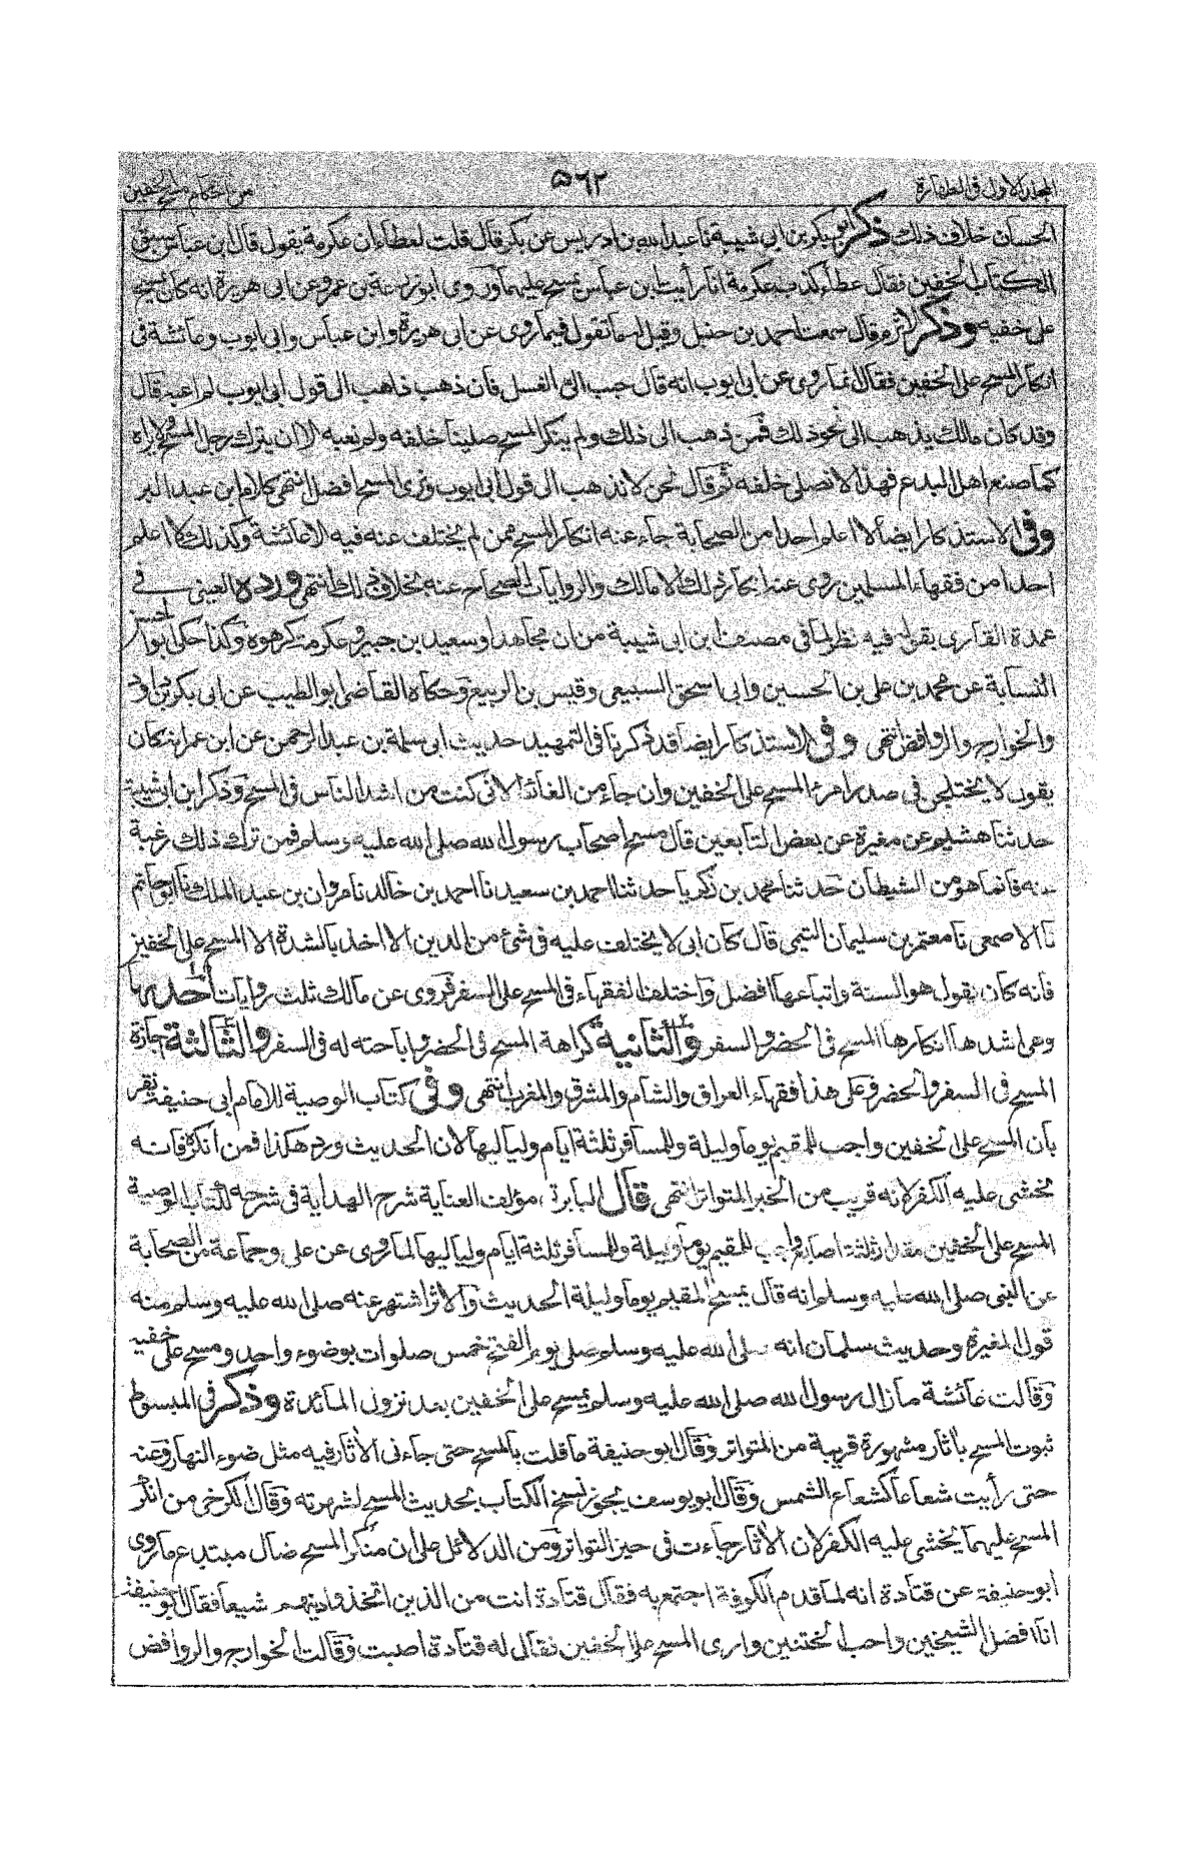 المجلد الاول فى الطهارة ۵۶۲ من احكام مسح الخفين
الحسان خلاف ذلك ذكر ابو بكر بن ابى شيبة نا عبد الله بن ادريس عن بكر قال قلت لعطاء ان عكرمة يقول قال ابن عباس سبق
الكتاب الخفين فقال عطاء كذب عكرمة انا رأيت ابن عباس يمسح عليهما وروى ابو زرعة بن عمرو عن ابى هريرة انه كان يمسح
على خفيه وذكر الاثرم قال سمعت احمد بن حنبل وقيل له ما تقول فيما روى عن ابى هريرة وابن عباس وابى ايوب وعائشة فى
انكار المسح على الخفين فقال انما روى عن ابى ايوب انه قال حبب الى الغسل فان ذهب ذاهب الى قول ابى ايوب لم اعبه قال
وقد كان مالك يذهب الى نحو ذلك فمن ذهب الى ذلك ولم ينكر المسح صلينا خلفه ولم نعبه الا ان يترك رجل المسح ولا يراه
كما صنع اهل البدع فهذا لا نصلى خلفه ثم قال نحن لا نذهب الى قول ابى ايوب ونرى المسح افضل انتهى كلام ابن عبد البر
وفى الاستذكار ايضا لا اعلم احدا من الصحابة جاء عنه انكار المسح ممن لم يختلف عنه فيه الا عائشة وكذلك لا اعلم
احدا من فقهاء المسلمين روى عنه انكار ذلك الا مالك والروايات الصحاح عنه بخلاف ذلك انتهى ورده العينى فى
عمدة القارى بقوله فيه نظر لما فى مصنف ابن ابى شيبة من ان مجاهدا وسعيد بن جبير وعكرمة كرهوه وكذا حكى ابو الحسن
النسابة عن محمد بن على بن الحسين وابى اسحق السبيعى وقيس بن الربيع وحكاه القاضى ابو الطيب عن ابى بكر بن داود
والخوارج والروافض انتهى وفى الاستذكار ايضا قد ذكرنا فى التمهيد حديث ابى سلمة بن عبد الرحمن عن ابن عمر انه كان
يقول لا يختلجن فى صدر امرء المسح على الخفين وان جاء من الغائط الا انى كنت من اشد الناس فى المسح وذكر ابن ابى شيبة
حدثنا هشيم عن مغيرة عن بعض التابعين قال مسح اصحاب رسول الله صلى الله عليه وسلم فمن ترك ذلك رغبة
عنه فانما هو من الشيطان حدثنا محمد بن زكريا حدثنا احمد بن سعيد نا احمد بن خالد نا مروان بن عبد الملك نا ابو حاتم
نا الاصمعى نا معتمر بن سليمان التيمى قال كان ابى لا يختلف عليه فى شئ من الدين الا اخذ بالشدة الا المسح على الخفين
فانه كان يقول هو السنة واتباعها افضل واختلف الفقهاء فى المسح على السفر فروى عن مالك ثلث روايات احدها
وهى اشدها انكارها المسح فى الحضر والسفر والثانية كراهة المسح فى الحضر واباحته له فى السفر والثالثة اجازة
المسح فى السفر والحضر وعلى هذا فقهاء العراق والشام والمشرق والمغرب انتهى وفى كتاب الوصية للامام ابى حنيفة نقر
بان المسح على الخفين واجب للمقيم يوما وليلة وللمسافر ثلثة ايام ولياليها لان الحديث ورد هكذا فمن انكر فانه
يخشى عليه الكفر لانه قريب من الخبر المتواتر انتهى قال البابرتى مؤلف العناية شرح الهداية فى شرحه لكتاب الوصية
المسح على الخفين مقدار ثلثة اصابع واجب للمقيم يوما وليلة وللمسافر ثلثة ايام ولياليها لما روى عن على وجماعة من الصحابة
عن النبى صلى الله عليه وسلم انه قال يمسح المقيم يوما وليلة الحديث والاثر اشتهر عنه صلى الله عليه وسلم منه
قول المغيرة وحديث سلمان انه صلى الله عليه وسلم صلى يوم الفتح خمس صلوات بوضوء واحد ومسح على خفيه
وقالت عائشة ما زال رسول الله صلى الله عليه وسلم يمسح على الخفين بعد نزول المائدة وذكر فى المبسوط
ثبوت المسح بآثار مشهورة قريبة من المتواتر وقال ابو حنيفة ما قلت بالمسح حتى جاءنى الآثار فيه مثل ضوء النهار وعنه
حتى رأيت شعاعا كشعاع الشمس وقال ابو يوسف يجوز نسخ الكتاب بحديث المسح لشهرته وقال الكرخى من انكر
المسح عليهما يخشى عليه الكفر لان الآثار جاءت فى حيز التواتر ومن الدلائل على ان منكر المسح ضال مبتدع ما روى
ابو حنيفة عن قتادة انه لما قدم الكوفة اجتمع به فقال قتادة انت من الذين اتخذوا دينهم شيعا فقال ابو حنيفة
انا افضل الشيخين واحب الختنين وارى المسح على الخفين فقال له قتادة اصبت وقالت الخوارج والروافض